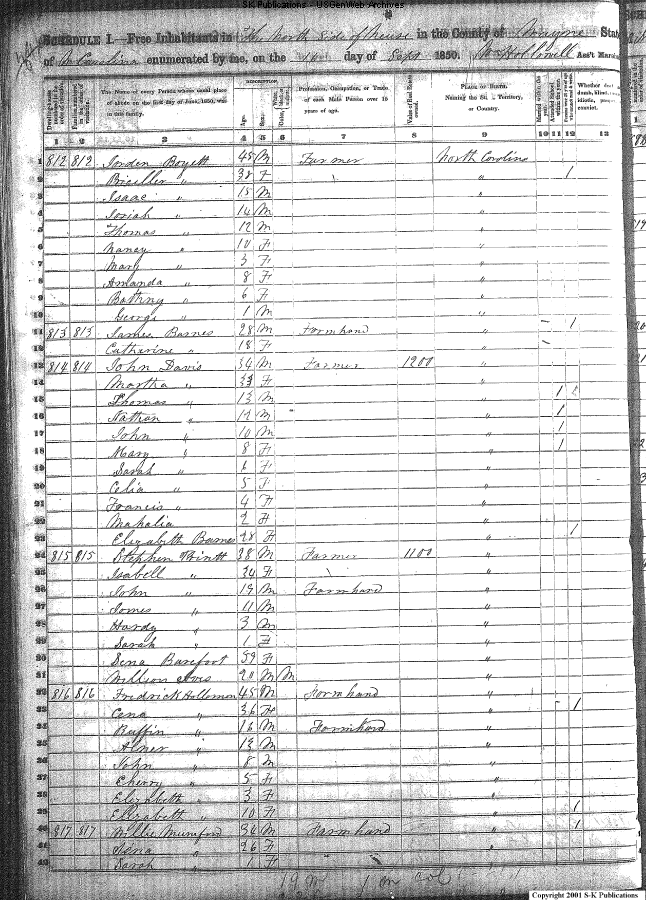 S-K Publications - USGenWeb Archives
SCHEDULE I.—Free Inhabitants in The North Side of Neuse in the County of Wayne State
of N Carolina enumerated by me, on the day of Sept 1850. Wm Hollowell Ass't Marshal
The Name of every Person whose usual place of abode on the first day of June, 1850, was in this family.
DESCRIPTION.
Age.
Sex.
Profession, Occupation, or Trade of each Male Person over 15 years of age.
Value of Real Estate owned.
PLACE OF BIRTH.
Naming the State, Territory, or Country.
Whether deaf dumb, blind, idiotic, convict.
1 2 3 4 5 6 7 8 9 10 11 12 13
1 812 812 Jorden Boyett 45 M Farmer North Carolina
2 " 38 F " 1
3 Isaac " 15 M "
4 Josiah " 14 M "
5 Thomas " 12 M "
6 Nancy " 10 F "
7 Mary " 3 F "
8 Amanda " 8 F "
9 " 6 F "
10 George " 1 M "
11 813 813 James Barnes 28 M Farmhand " 1
12 Catharine " 18 F "
13 814 814 John Davis 34 M Farmer 1200 "
14 Martha " 33 F "
15 Thomas " 13 M " 1
16 Nathan " 12 M " 1
17 John " 10 M " 1
18 Mary " 8 F " 1
19 Sarah " 6 F "
20 Celia " 5 F "
21 Francis " 4 F "
22 Mahalia 2 F "
23 Elizabeth Barnes 28 F " 1
24 815 815 Stephen 38 M Farmer 1100 "
25 Isabell " 34 F "
26 John " 19 M Farmhand "
27 James " 11 M "
28 Hardy " 3 M "
29 Sarah " 1 F "
30 Sena Barefoot 59 F "
31 William 20 M M "
32 816 816 Fredrick Holloman 45 M Farmhand "
33 Cena " 36 F " 1
34 Ruffin " 16 M Farmhand "
35 Abner " 13 M "
36 John " 8 M "
37 Cherry " 5 F "
38 Elizabeth " 3 F "
39 Elizabeth " 10 F " 1
40 817 817 Willie Mumford 34 M Farmhand " 1
41 " 26 F "
42 Sarah " 1 F "
Copyright 2001 S-K Publications